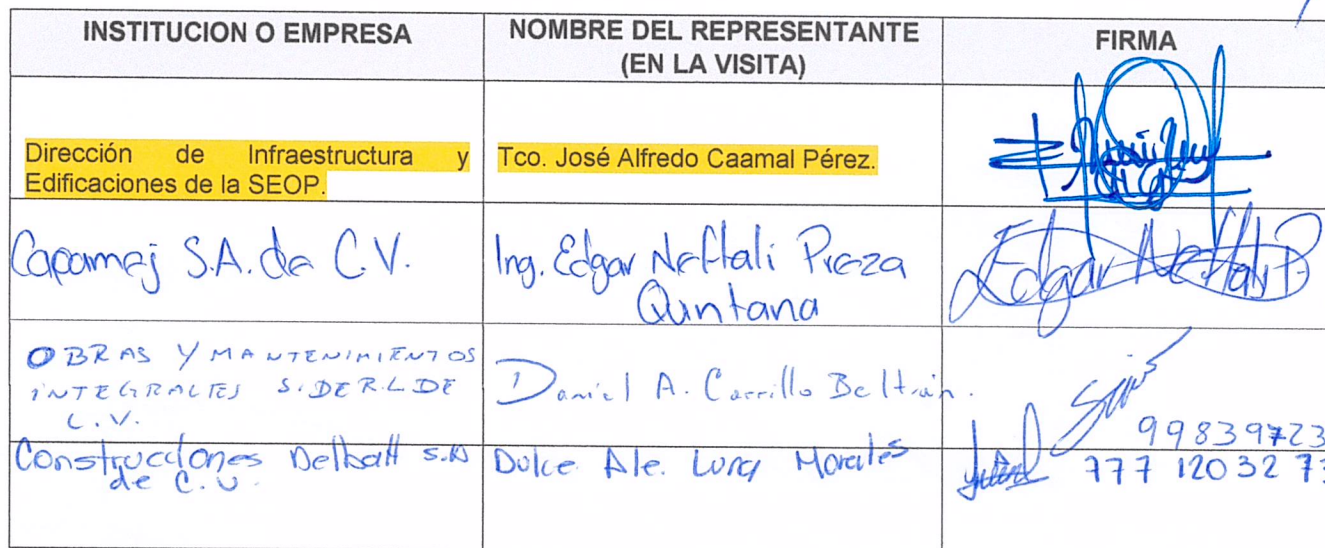 INSTITUCION O EMPRESA
NOMBRE DEL REPRESENTANTE
(EN LA VISITA)
FIRMA
Dirección de Infraestructura y
Edificaciones de la SEOP.
Tco. José Alfredo Caamal Pérez.
Capamej S.A. de C.V.
Ing. Edgar Neftali Preza
Quintana
Edgar Neftali P.
OBRAS Y MANTENIMIENTOS
INTEGRALES S. DE R.L DE
C.V.
Daniel A. Carrillo Beltrán.
99839723
Construcciones Delbatt S.A
de C.V.
Dulce Ale. Luna Morales
777 120 32 73